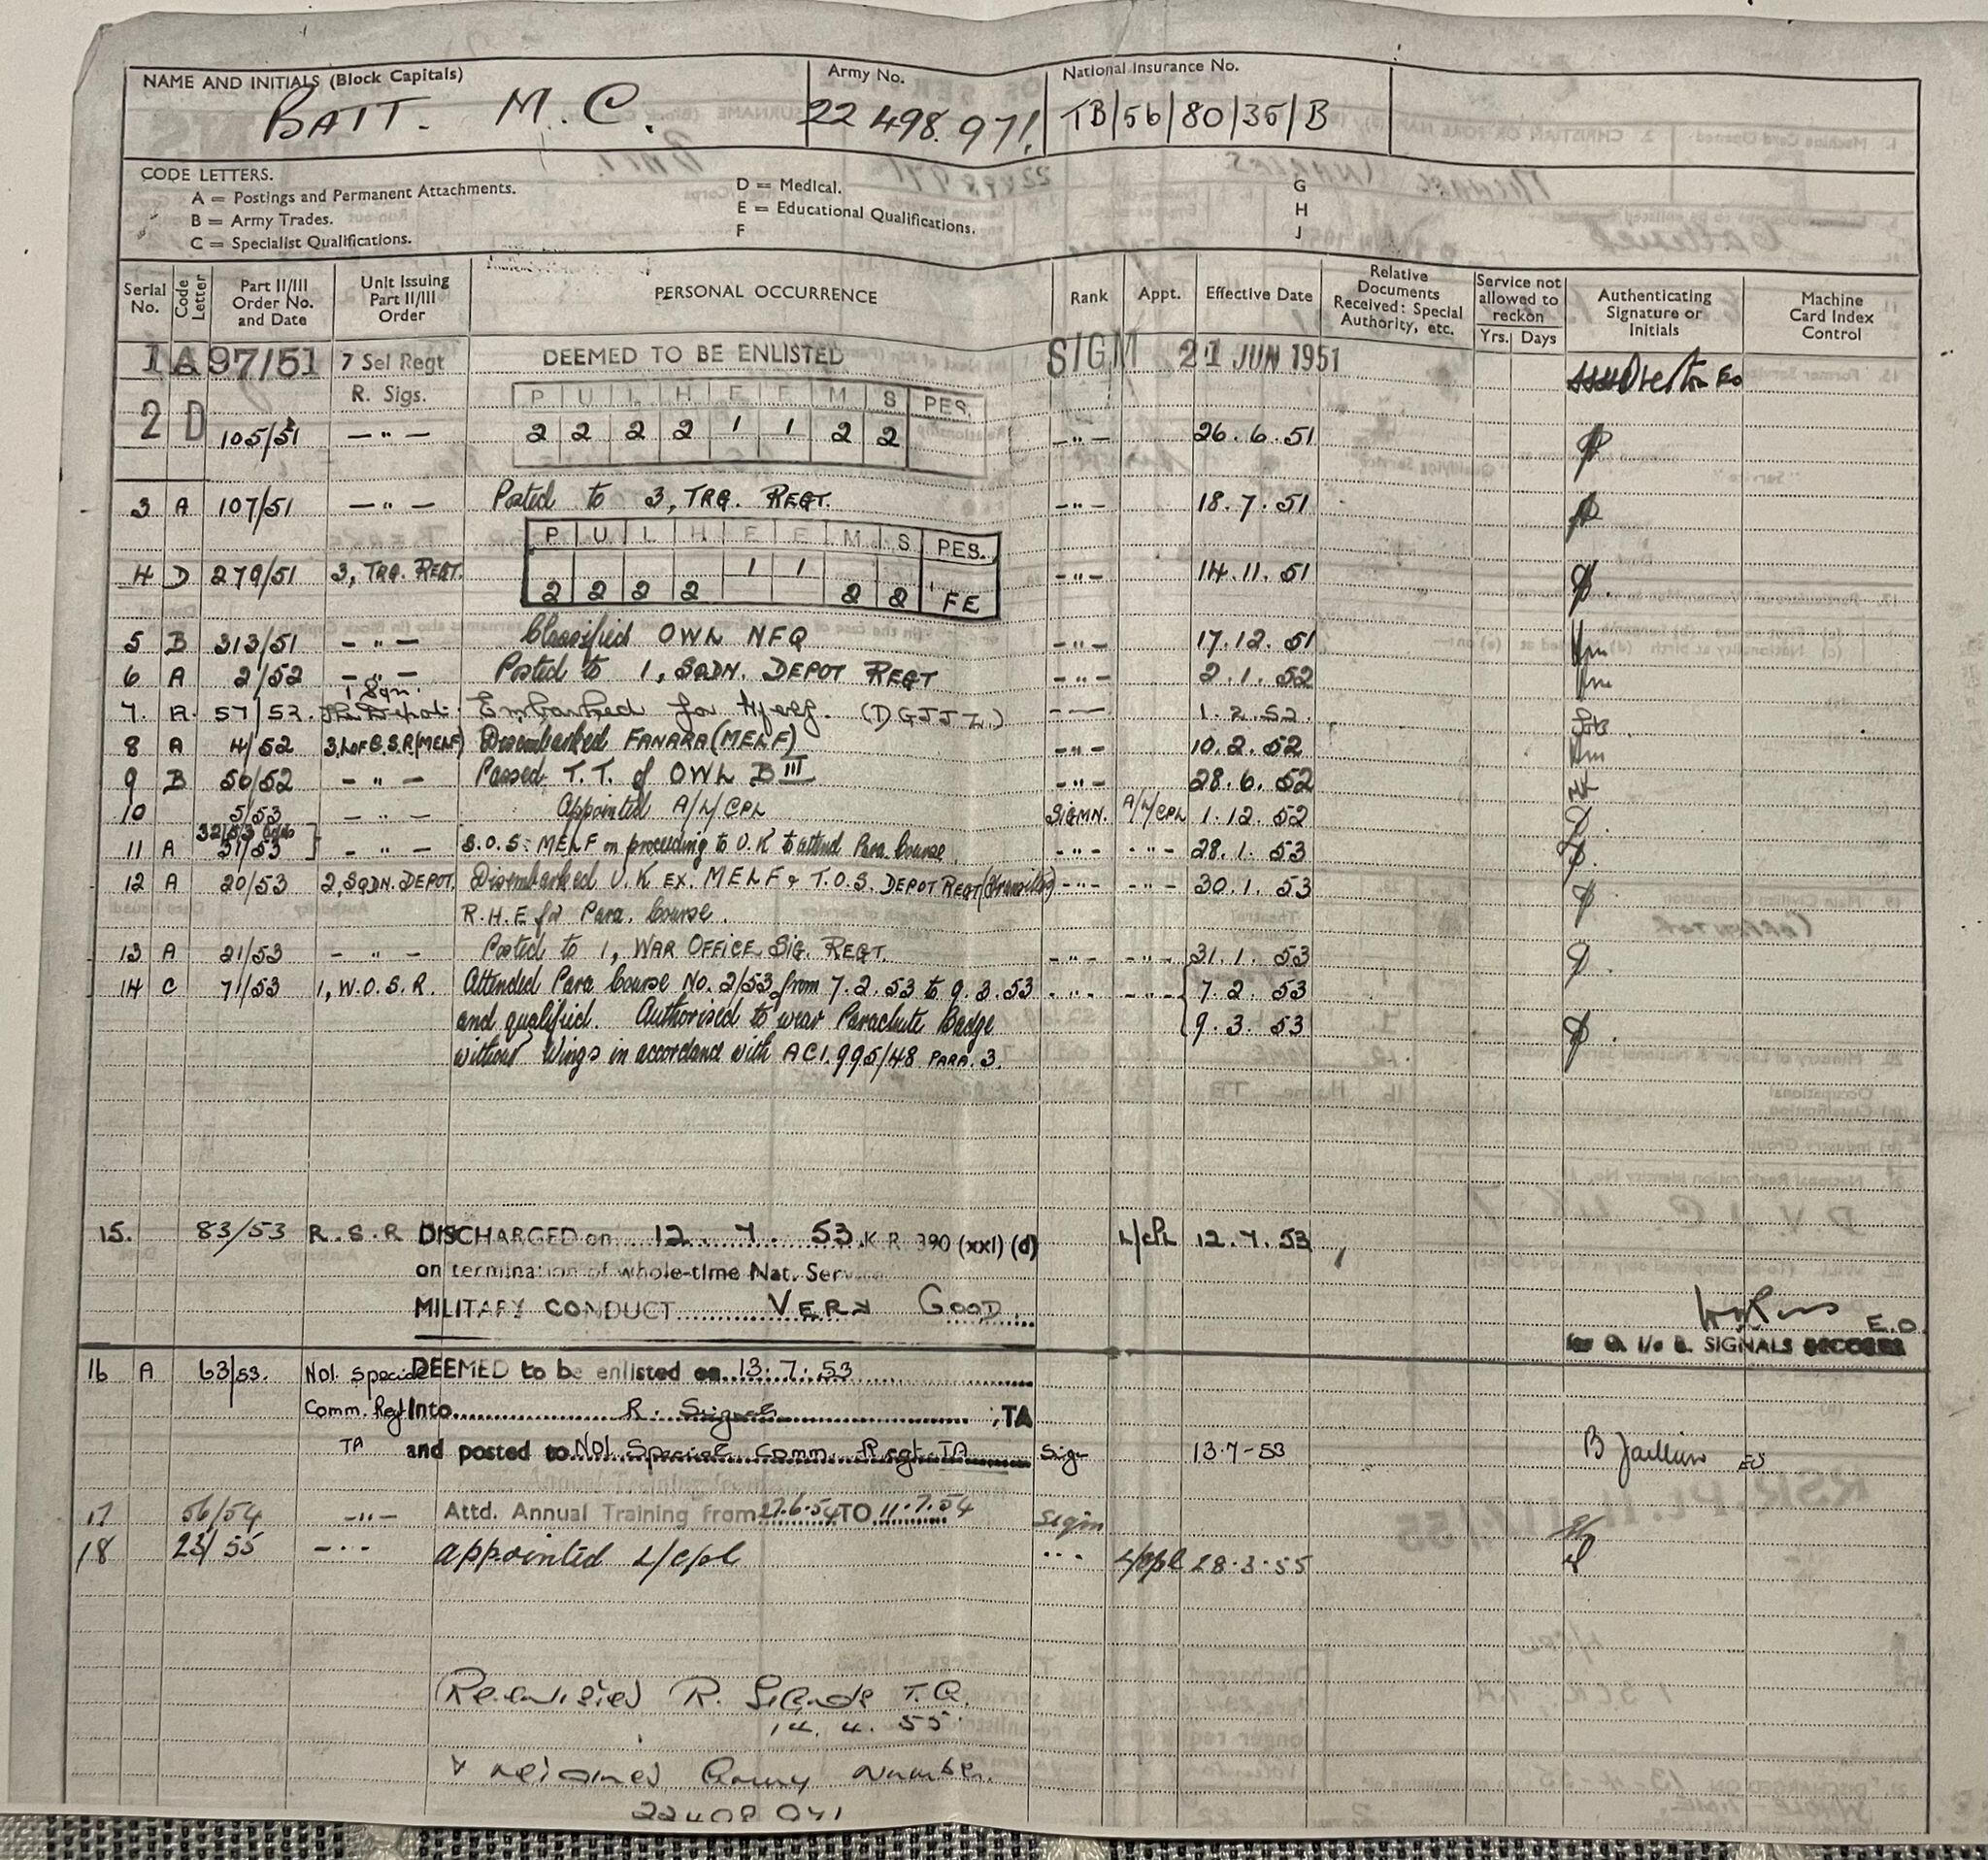 NAME AND INITIALS (Block Capitals) Army No. National Insurance No.
BATT. M. C. 22498971 TB/56/80/35/B
CODE LETTERS.
A = Postings and Permanent Attachments. D = Medical. G
B = Army Trades. E = Educational Qualifications. H
C = Specialist Qualifications. F J
Serial No. Code Letter Part II/III Order No. and Date Unit Issuing Part II/III Order PERSONAL OCCURRENCE Rank Appt. Effective Date Relative Documents Received: Special Authority, etc. Service not allowed to reckon Yrs. Days Authenticating Signature or Initials Machine Card Index Control
1 A 97/51 7 Sel Regt DEEMED TO BE ENLISTED SIGM 21 JUN 1951
R. Sigs. P U L H E E M S PES.
2 D 105/51 — " — 2 2 2 2 1 1 2 2 — " — 26.6.51
3 A 107/51 — " — Posted to 3, TRG. REGT. — " — 18.7.51
P U L H E E M S PES.
4 D 279/51 3, TRG. REGT. 2 2 2 2 1 1 2 2 FE — " — 14.11.51
5 B 313/51 — " — Classified OWL NFQ — " — 17.12.51
6 A 2/52 — " — Posted to 1, SQDN. DEPOT REGT — " — 2.1.52
1 Sqn.
7. A. 57/52. The Depot. Embarked for (DGJJL) — — 1.2.52.
8 A 4/52 3, L of C.S.R (MELF) Disembarked FANARA (MELF) — " — 10.2.52
9 B 50/52 — " — Passed T.T. of OWL B III 28.6.52
10 5/53 — " — Appointed A/L/CPL SIGMN. A/L/CPL 1.12.52
11 A 31/53 — " — S.O.S. MELF on proceeding to U.K to attend Para. Course. — " — — " — 28.1.53
12 A 20/53 2, SQDN. DEPOT. Disembarked U.K EX. MELF & T.O.S. DEPOT REGT (Transites) — " — — " — 30.1.53
R.H.E for Para. Course.
13 A 21/53 — " — Posted to 1, WAR OFFICE SIG. REGT. — " — — " — 31.1.53
14 C 71/53 1, W.O.S.R. Attended Para Course No. 2/53, from 7.2.53 to 9.3.53 — " — — " — 7.2.53
and qualified. Authorised to wear Parachute Badge 9.3.53
without Wings in accordand with ACI.995/48 PARA.3.
15. 83/53 R.S.R DISCHARGED on 12. 7. 53 K.R. 390 (xxi) (d) L/CPL 12.7.53
on termination of whole-time Nat. Service
MILITARY CONDUCT VERY GOOD.
E.O.
for O. i/c R. SIGNALS RECORDS
16 A 63/53. No1. Special DEEMED to be enlisted on 13.7.53
Comm. Regt Into R. Signals ,TA
TA and posted to No1. Special Comm. Regt. TA Sigr 13-7-53
17 56/54 — " — Attd. Annual Training from 27.6.54 TO 11.7.54 Sigm
18 23/55 — " — appointed L/cpl " L/cpl 28.3.55
Re-enlisted R. Signals T.A.
14. 4. 55.
& retained Army Number.